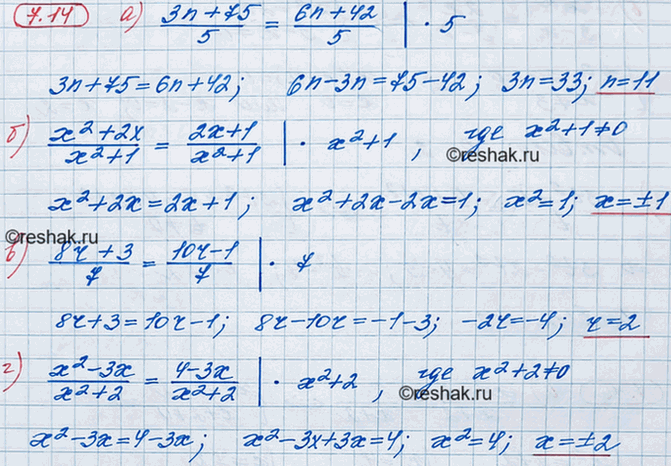 7.14 а) (3n+75)/5 = (6n+42)/5 | · 5
3n+75=6n+42; 6n-3n=75-42; 3n=33; n=11
б) (x²+2x)/(x²+1) = (2x+1)/(x²+1) | · x²+1, где x²+1≠0
©reshak.ru
x²+2x=2x+1; x²+2x-2x=1; x²=1; x=±1
©reshak.ru
в) (8r+3)/7 = (10r-1)/7 | · 7
8r+3=10r-1; 8r-10r=-1-3; -2r=-4; r=2
г) (x²-3x)/(x²+2) = (4-3x)/(x²+2) | · x²+2, где x²+2≠0
©reshak.ru
x²-3x=4-3x; x²-3x+3x=4; x²=4; x=±2